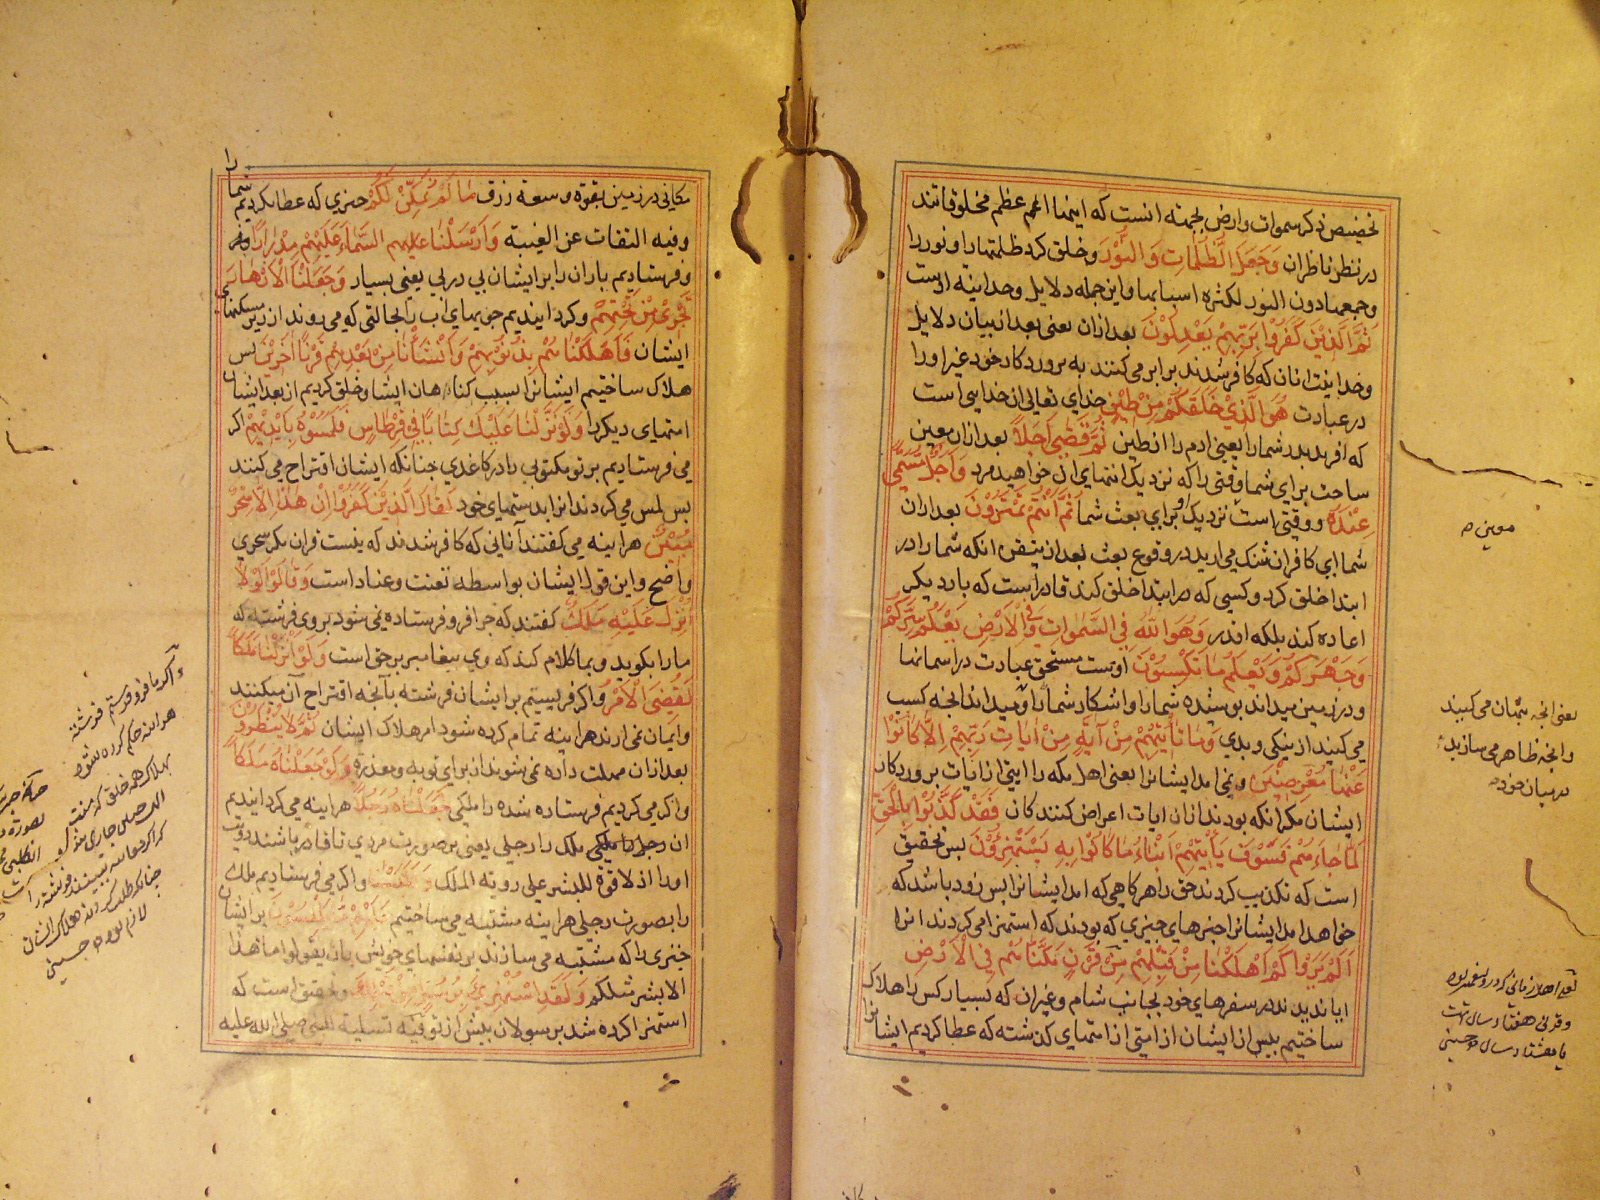 تخصیص ذکر سموات و ارض بجهته انست که اینها اعم عظم مخلوقاتند
در نظر ناظران وَجَعَلَ الظُّلُمَاتِ وَالنُّوْرَ و خلق کرد ظلمتها را و نور را
و جمع مادون النور لکثرة اسبابها و این جمله دلایل وحدانیته اوست
ثُمَّ الَّذِيْنَ كَفَرُوْا بِرَبِّهِمْ يَعْدِلُوْنَ بعد ازان یعنی بعد از بیان دلایل
وحدانیت انان که کافر شدند برابر می کنند به پروردکار خود غیر او را
در عبادت هُوَ الَّذِيْ خَلَقَكُمْ مِنْ طِيْنٍ خدای تعالی ان خدایی است
که افرید پدر شما را یعنی ادم را از طین ثُمَّ قَضٰى اَجَلًا بعد ازان معین
ساخت برای شما وقتی را که نزدیک انتهای ان خواهید مرد وَاَجَلٌ مُسَمًّى
عِنْدَهُ و وقتی است نزدیک او برای بعث شما ثُمَّ اَنْتُمْ تَمْتَرُوْنَ بعد ازان
شما ای کافران شک می ارید در وقوع بعث بعد از یتقن انکه شما را در
ابتدا خلق کرد و کسی که در ابتدا خلق کند قادر است که بار دیکر
اعاده کند بلکه اقدر وَهُوَ اللهُ فِي السَّمٰوَاتِ وَفِي الْاَرْضِ يَعْلَمُ سِرَّكُمْ
وَجَهْرَكُمْ وَيَعْلَمُ مَا تَكْسِبُوْنَ اوست مستحق عبادت در اسمانها
و در زمین میداند پوشیده شما را و اشکار شما را و میداند انچه کسب
می کنید از نیکی و بدی وَمَا تَأْتِيْهِمْ مِنْ اٰيَةٍ مِنْ اٰيَاتِ رَبِّهِمْ اِلَّا كَانُوْا
عَنْهَا مُعْرِضِيْنَ و نمی اید ایشانرا یعنی اهل مکه را ایتی از ایات پروردکار
ایشان مکر انکه بودند ازان ایات اعراض کنندکان فَقَدْ كَذَّبُوْا بِالْحَقِّ
لَمَّا جَاءَهُمْ فَسَوْفَ يَأْتِيْهِمْ اَنْبَاءُ مَا كَانُوْا بِهِ يَسْتَهْزِءُوْنَ پس تحقیق
است که تکذیب کردند حق را هرکاهی که امد ایشانرا پس زود باشد که
خواهد امد ایشانرا خبرهای چیزی که بودند که استهزا می کردند انرا
اَلَمْ يَرَوْا كَمْ اَهْلَكْنَا مِنْ قَبْلِهِمْ مِنْ قَرْنٍ مَكَّنَّاهُمْ فِي الْاَرْضِ
ایا ندیدند در سفرهای خود بجانب شام و غیر ان که بسیار کس را هلاک
ساختیم پیش از ایشان از امتی از امتهای کذشته که عطا کردیم ایشانرا
معین
یعنی انچه پنهان می کنید
و انچه ظاهر می سازید
یعنی اهل زمانی که درو پیغمبر بوده
و قرنی هفتاد سال است
یا هشتاد سال حسینی
مکانی در زمین بقوة و سعة رزق مَا لَمْ نُمَكِّنْ لَكُمْ چیزی که عطا نکردیم شما را
و فیه التفات عن الغیبة وَاَرْسَلْنَا السَّمَاءَ عَلَيْهِمْ مِدْرَارًا
و فرستادیم باران را بر ایشان پی در پی یعنی بسیار وَجَعَلْنَا الْاَنْهَارَ
تَجْرِيْ مِنْ تَحْتِهِمْ و کردانیدیم جویهای اب را بحالتی که می روند از زیر مسکنهای
ایشان فَاَهْلَكْنَاهُمْ بِذُنُوْبِهِمْ وَاَنْشَأْنَا مِنْ بَعْدِهِمْ قَرْنًا اٰخَرِيْنَ پس
هلاک ساختیم ایشانرا بسبب کناهان ایشان و خلق کردیم از بعد ایشان
امتهای دیکر را وَلَوْ نَزَّلْنَا عَلَيْكَ كِتَابًا فِيْ قِرْطَاسٍ فَلَمَسُوْهُ بِاَيْدِيْهِمْ اکر
می فرستادیم بر تو مکتوبی را در کاغدی چنانکه ایشان اقتراح می کنند
پس لمس می کردند انرا بدستهای خود لَقَالَ الَّذِيْنَ كَفَرُوْا اِنْ هٰذَا اِلَّا سِحْرٌ
مُبِيْنٌ هراینه می کفتند آنانی که کافر شدند که نیست قران مکر سحری
واضح و این قول ایشان بواسطه تعنت و عناد است وَقَالُوْا لَوْلَا
اُنْزِلَ عَلَيْهِ مَلَكٌ کفتند که چرا فرو فرستاده نمی شود بروی فرشته که
مارا بکوید و بما کلام کند که وی پیغامبر برحق است وَلَوْ اَنْزَلْنَا مَلَكًا
لَقُضِيَ الْاَمْرُ و اکر فرستیم بر ایشان فرشته بآنچه اقتراح آن میکنند
و ایمان نمی ارند هراینه تمام کرده شود امر هلاک ایشان ثُمَّ لَا يُنْظَرُوْنَ
بعد ازان مهلت داده نمی شوند از برای توبه و معذره وَلَوْ جَعَلْنَاهُ مَلَكًا
و اکر می کردیم فرستاده شده را ملکی لَجَعَلْنَاهُ رَجُلًا هراینه می کردانیدیم
ان ملک را رجلی یعنی بر صورت مردی تا قادر باشند
اورا اذ لا قوة للبشر علی رویة الملک وَلَلَبَسْنَا و اکر می فرستادیم ملک
را بصورت رجلی هراینه مشتبه می ساختیم عَلَيْهِمْ مَا يَلْبِسُوْنَ بر ایشان
چیزی را که مشتبه می سازند بر نفسهای خویش بان یقولوا ما هذا
الا بشر مثلکم وَلَقَدِ اسْتُهْزِئَ بِرُسُلٍ مِنْ قَبْلِكَ و تحقیق است که
استهزا کرده شد برسولان پیش از تو فیه تسلیة للنبی صلی الله علیه
و اکر ما فرو فرستیم فرشته
هراینه حکم کرده شود